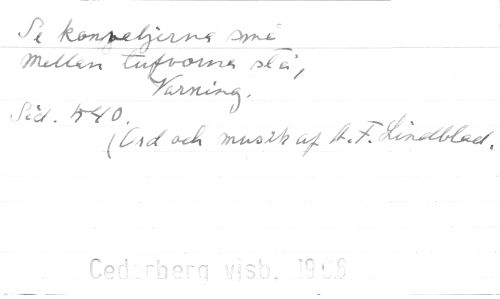 Se konvaljerna små
Mellan tufvorna stå,
Varning.
Sid. 440.
(Ord och musik af A. F. Lindblad.
Cederberg visb. 19 6